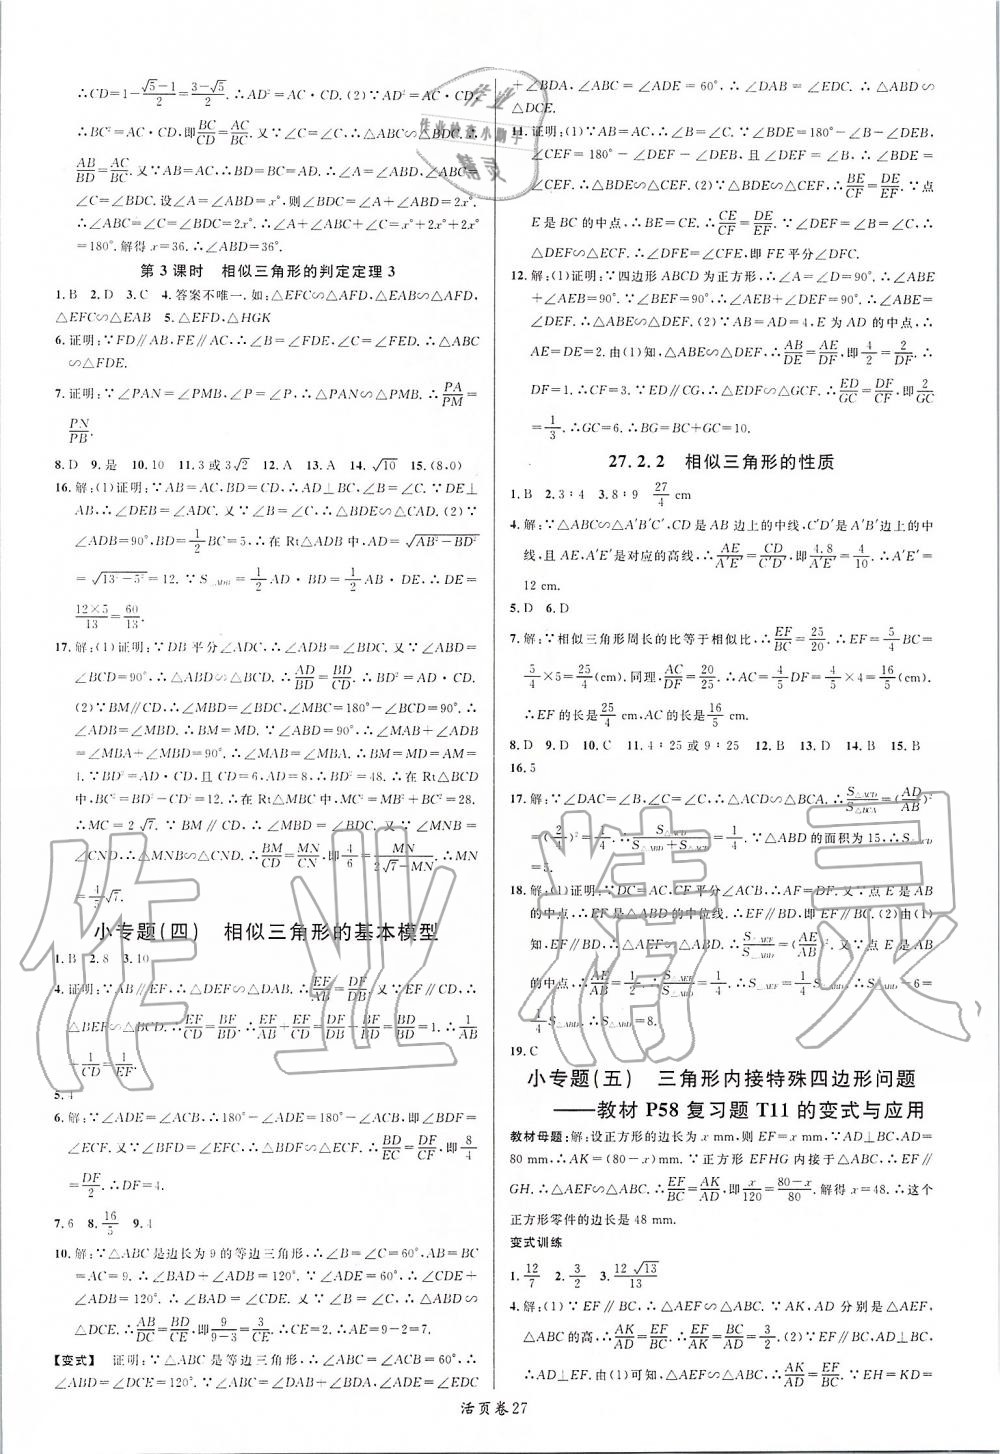 ∴CD=1-(√5-1)/2=(3-√5)/2.∴AD²=AC·CD.(2)∵AD²=AC·CD,
∴BC²=AC·CD,即BC/CD=AC/BC.又∵∠C=∠C,∴△ABC∽△BDC.∴
AB/BD=AC/BC.又∵AB=AC,∴BD=BC=AD.∴∠A=∠ABD,∠ABC=
∠C=∠BDC.设∠A=∠ABD=x°,则∠BDC=∠A+∠ABD=2x°.
∴∠ABC=∠C=∠BDC=2x°.∴∠A+∠ABC+∠C=x°+2x°+2x°
=180°.解得x=36.∴∠ABD=36°.
第3课时 相似三角形的判定定理3
1.B 2.D 3.C 4.答案不唯一.如:△EFC∽△AFD,△EAB∽△AFD,
△EFC∽△EAB 5.△EFD,△HGK
6.证明:∵FD∥AB,FE∥AC,∴∠B=∠FDE,∠C=∠FED.∴△ABC
∽△FDE.
7.证明:∵∠PAN=∠PMB,∠P=∠P,∴△PAN∽△PMB.∴PA/PM=
PN/PB.
8.D 9.是 10.10 11.2或3√2 12.A 13.A 14.√10 15.(8,0)
16.解:(1)证明:∵AB=AC,BD=CD,∴AD⊥BC,∠B=∠C.∵DE⊥
AB,∴∠DEB=∠ADC.又∵∠B=∠C,∴△BDE∽△CAD.(2)∵
∠ADB=90°,BD=1/2BC=5,∴在Rt△ADB中,AD=√(AB²-BD²)
=√(13²-5²)=12.∵S△ADB=1/2AD·BD=1/2AB·DE,∴DE=
(12×5)/13=60/13.
17.解:(1)证明:∵DB平分∠ADC,∴∠ADB=∠CDB.又∵∠ABD=
∠BCD=90°,∴△ABD∽△BCD.∴AD/BD=BD/CD.∴BD²=AD·CD.
(2)∵BM∥CD,∴∠MBD=∠BDC,∠MBC=180°-∠BCD=90°.∴
∠ADB=∠MBD.∴BM=MD.又∵∠ABD=90°,∴∠MAB+∠ADB
=∠MBA+∠MBD=90°.∴∠MBA=∠MAB.∴BM=MD=AM=
4.∵BD²=AD·CD,且CD=6,AD=8,∴BD²=48.∴在Rt△BCD
中,BC²=BD²-CD²=12.∴在Rt△MBC中,MC²=MB²+BC²=28.
∴MC=2√7.∵BM∥CD,∴∠MBD=∠BDC.又∵∠MNB=
∠CND,∴△MNB∽△CND.∴BM/CD=MN/CN,即4/6=MN/(2√7-MN).∴MN
=4/5√7.
小专题(四) 相似三角形的基本模型
1.B 2.8 3.10
4.证明:∵AB∥EF,∴△DEF∽△DAB.∴EF/AB=DF/DB.又∵EF∥CD,∴
△BEF∽△BCD.∴EF/CD=BF/BD.∴EF/AB+EF/CD=DF/BD+BF/BD=BD/BD=1.∴1/AB
+1/CD=1/EF.
5.4
6.解:∵△ABC沿EF折叠,点A落在BC边上的点D处,
∠ECF.又∵∠BFD=∠EFC,∴△BDF∽△ECF.∴BD/EC=DF/CF,即8/4
=DF/2.∴DF=4.
7.6 8.16/5 9.4
10.解:∵△ABC是边长为9的等边三角形,∴∠B=∠C=60°,AB=BC
=AC=9.∴∠BAD+∠ADB=120°.∵∠ADE=60°,∴∠ADB+
∠CDE=120°.∴∠BAD=∠CDE.又∵∠B=∠C,∴△ABD∽
△DCE.∴AB/DC=BD/CE,即9/(9-3)=3/CE.∴CE=2.∴AE=9-2=7.
【变式】 证明:∵△ABC是等边三角形,∴∠ABC=∠ACB=60°,∴
∠ABD=∠DCE=120°.∵∠DAB+∠BDA=∠ABC=60°,∠ADE=∠EDC
+∠BDA,∠ABC=∠ADE=60°,∴∠DAB=∠EDC.∴△ABD∽
△DCE.
11.证明:(1)∵AB=AC,∴∠B=∠C.∵∠BDE=180°-∠B-∠DEB,
∠CEF=180°-∠DEF-∠DEB,∠DEF=∠B,∴∠BDE=
∠CEF.∴△BDE∽△CEF.(2)∵△BDE∽△CEF,∴BE/CF=DE/EF.∵点
E是BC的中点,∴BE=CE.∴CE/CF=DE/EF.∵∠DEF=∠B=∠C,∴
△DEF∽△ECF.∴∠DFE=∠CFE.∴FE平分∠DFC.
12.解:(1)证明:∵四边形ABCD为正方形,∴∠A=∠D=90°.∴∠ABE
+∠AEB=90°.∵∠BEF=90°,∴∠AEB+∠DEF=90°.∴∠ABE=
∠DEF.∴△ABE∽△DEF.(2)∵AB=AD=4,E为AD的中点,∴
AE=DE=2.由(1)知,△ABE∽△DEF,∴AB/DE=AE/DF,即4/2=2/DF.∴
DF=1.∴CF=3.∵ED∥CG,∴△EDF∽△GCF.∴ED/GC=DF/CF,即2/GC
=1/3.∴GC=6.∴BG=BC+GC=10.
27.2.2 相似三角形的性质
1.B 2.3∶4 3.8∶9 27/4 cm
4.解:∵△ABC∽△A′B′C′,CD是AB边上的中线,C′D′是A′B′边上的中
线,且AE,A′E′是对应的高线,∴AE/A′E′=CD/C′D′,即4.8/A′E′=4/10.∴A′E′=
12 cm.
5.D 6.D
7.解:∵相似三角形周长的比等于相似比,∴EF/BC=25/20.∴EF=5/4BC=
5/4×5=25/4(cm).同理,AC/DF=20/25.∴AC=4/5DF=4/5×4=16/5(cm).
∴EF的长是25/4 cm,AC的长是16/5 cm.
8.D 9.D 10.C 11.4∶25或9∶25 12.B 13.D 14.B 15.B
16.5
17.解:∵∠DAC=∠B,∠C=∠C,∴△ACD∽△BCA.∴S△ACD/S△BCA=(AD/AB)²
=(2/4)²=1/4.∴S△ACD/(S△ABD+S△ACD)=1/4.∵△ABD的面积为15,∴S△ACD
=5.
18.解:(1)证明:∵DC=AC,CF平分∠ACD,∴AF=DF.又∵点E是AB
的中点,∴EF是△ABD的中位线.∴EF∥BD.∴EF∥BC.(2)由(1)
知,EF∥BD,∴△AEF∽△ABD.∴S△AEF/S△ABD=(AE/AB)².又∵点E是AB
的中点,∴AE/AB=1/2.∴S△AEF/S△ABD=1/4.∴S△AEF=1/4S△ABD.∴S△ABD-6=
1/4S△ABD.∴S△ABD=8.
19.C
小专题(五) 三角形内接特殊四边形问题
——教材P58复习题T11的变式与应用
教材母题:解:设正方形的边长为x mm,则EF=x mm.∵AD⊥BC,AD=
80 mm,∴AK=(80-x)mm.∵正方形EFHG内接于△ABC,∴EF∥
GH.∴△AEF∽△ABC.∴EF/BC=AK/AD,即x/120=(80-x)/80.解得x=48.∴这个
正方形零件的边长是48 mm.
变式训练
1.12/7 2.3/2 3.12√13/13
4.解:(1)∵EF∥BC,∴△AEF∽△ABC.∵AK,AD分别是△AEF,
△ABC的高,∴AK/AD=EF/BC.∴EF/AK=BC/AD=3/2.(2)∵EH⊥BC,EF∥BC,
∴AD⊥EF.由(1)可知,△AEF∽△ABC,∴AK/AD=EF/BC.∵EH=KD=
活页卷27